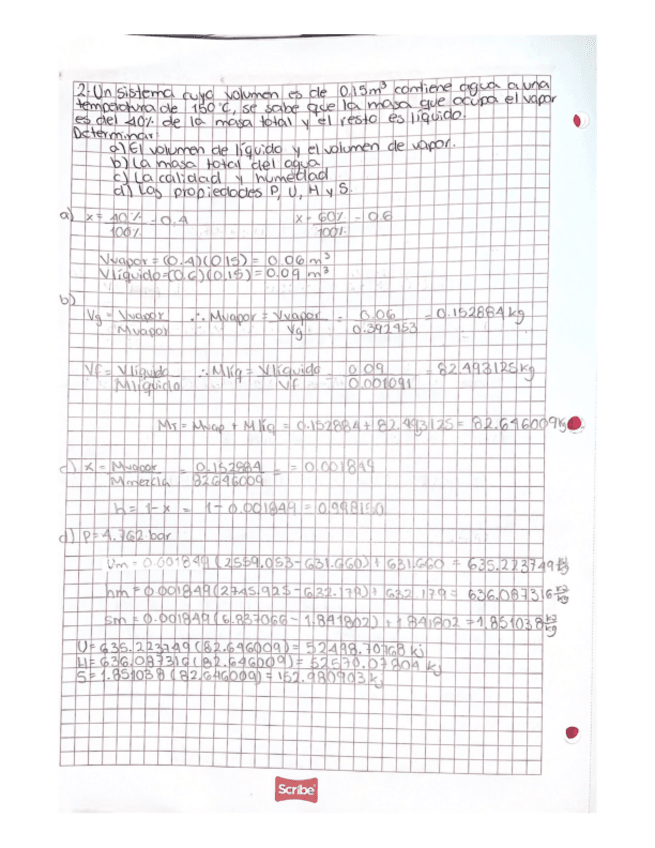 2. Un sistema cuyo volumen es de 0.15m³ contiene agua a una
temperatura de 150°C, se sabe que la masa que ocupa el vapor
es del 40% de la masa total y el resto es líquido.
Determinar:
a) El volumen de líquido y el volumen de vapor.
b) La masa total del agua
c) La calidad y humedad
d) Las propiedades P, U, H y S.
a) x = 40% / 100% = 0.4    x = 60% / 100% = 0.6
Vvapor = (0.4)(0.15) = 0.06 m³
Vlíquido = (0.6)(0.15) = 0.09 m³
b)
Vg = Vvapor / Mvapor ∴ Mvapor = Vvapor / Vg = 0.06 / 0.392453 = 0.152884 kg
Vf = Vlíquido / Mlíquido ∴ Mlíq = Vlíquido / Vf = 0.09 / 0.001091 = 82.493125 kg
MT = Mvap + Mlíq = 0.152884 + 82.493125 = 82.646009 kg
c) x = Mvapor / Mmezcla = 0.152884 / 82.646009 = = 0.001849
h = 1 - x = 1 - 0.001849 = 0.998150
d) P = 4.762 bar
Um = 0.001849 (2559.053 - 631.660) + 631.660 = 635.223749 kj/kg
hm = 0.001849 (2745.925 - 632.179) + 632.179 = 636.087316 kj/kg
Sm = 0.001849 (6.837066 - 1.841802) + 1.841802 = 1.851038 kj/kg
U = 635.223749 (82.646009) = 52498.70768 kj
H = 636.087316 (82.646009) = 52570.07804 kj
S = 1.851038 (82.646009) = 152.980903 kj
Scribe